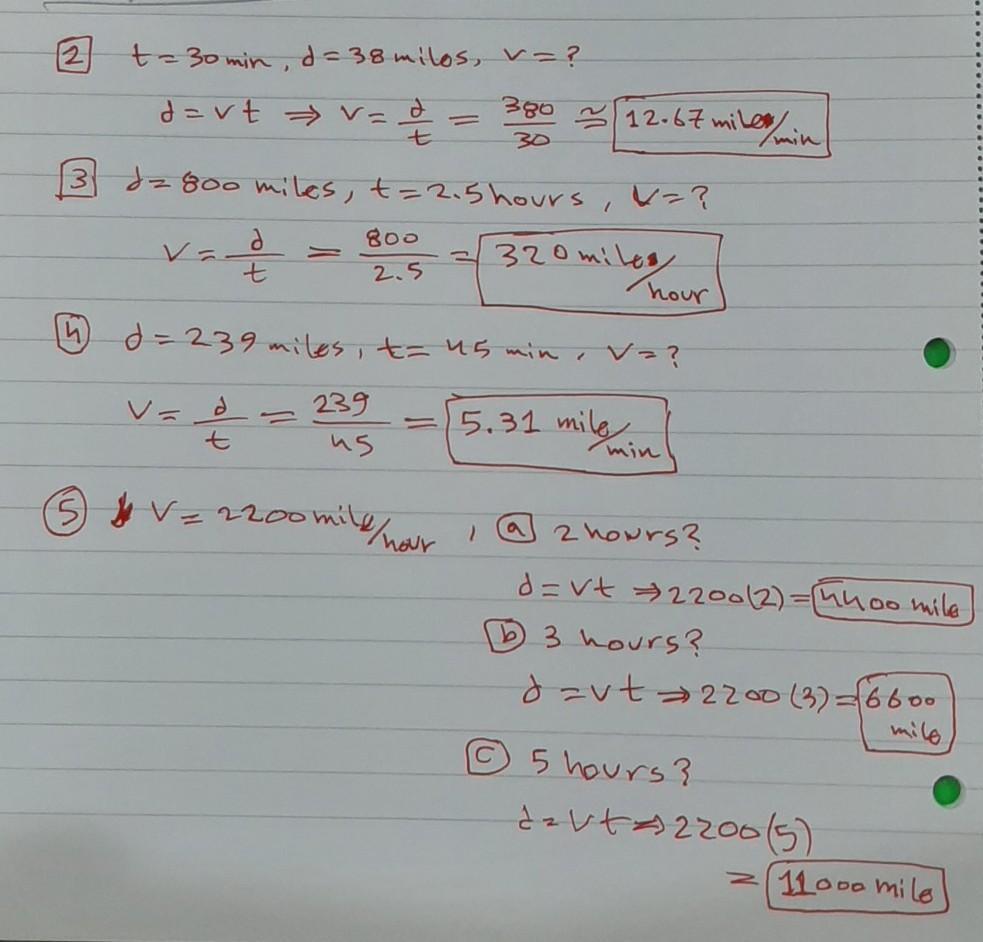 2 t = 30 min, d = 38 miles, v = ?
d = vt ⇒ v = d/t = 380/30 ≅ 12.67 miles/min
3 d = 800 miles, t = 2.5 hours, v = ?
v = d/t = 800/2.5 = 320 miles/hour
4 d = 239 miles, t = 45 min, v = ?
v = d/t = 239/45 = 5.31 mile/min
5 v = 2200 mile/hour, a 2 hours?
d = vt ⇒ 2200(2) = 4400 mile
b 3 hours?
d = vt ⇒ 2200(3) = 6600 mile
c 5 hours?
d = vt ⇒ 2200(5)
= 11000 mile